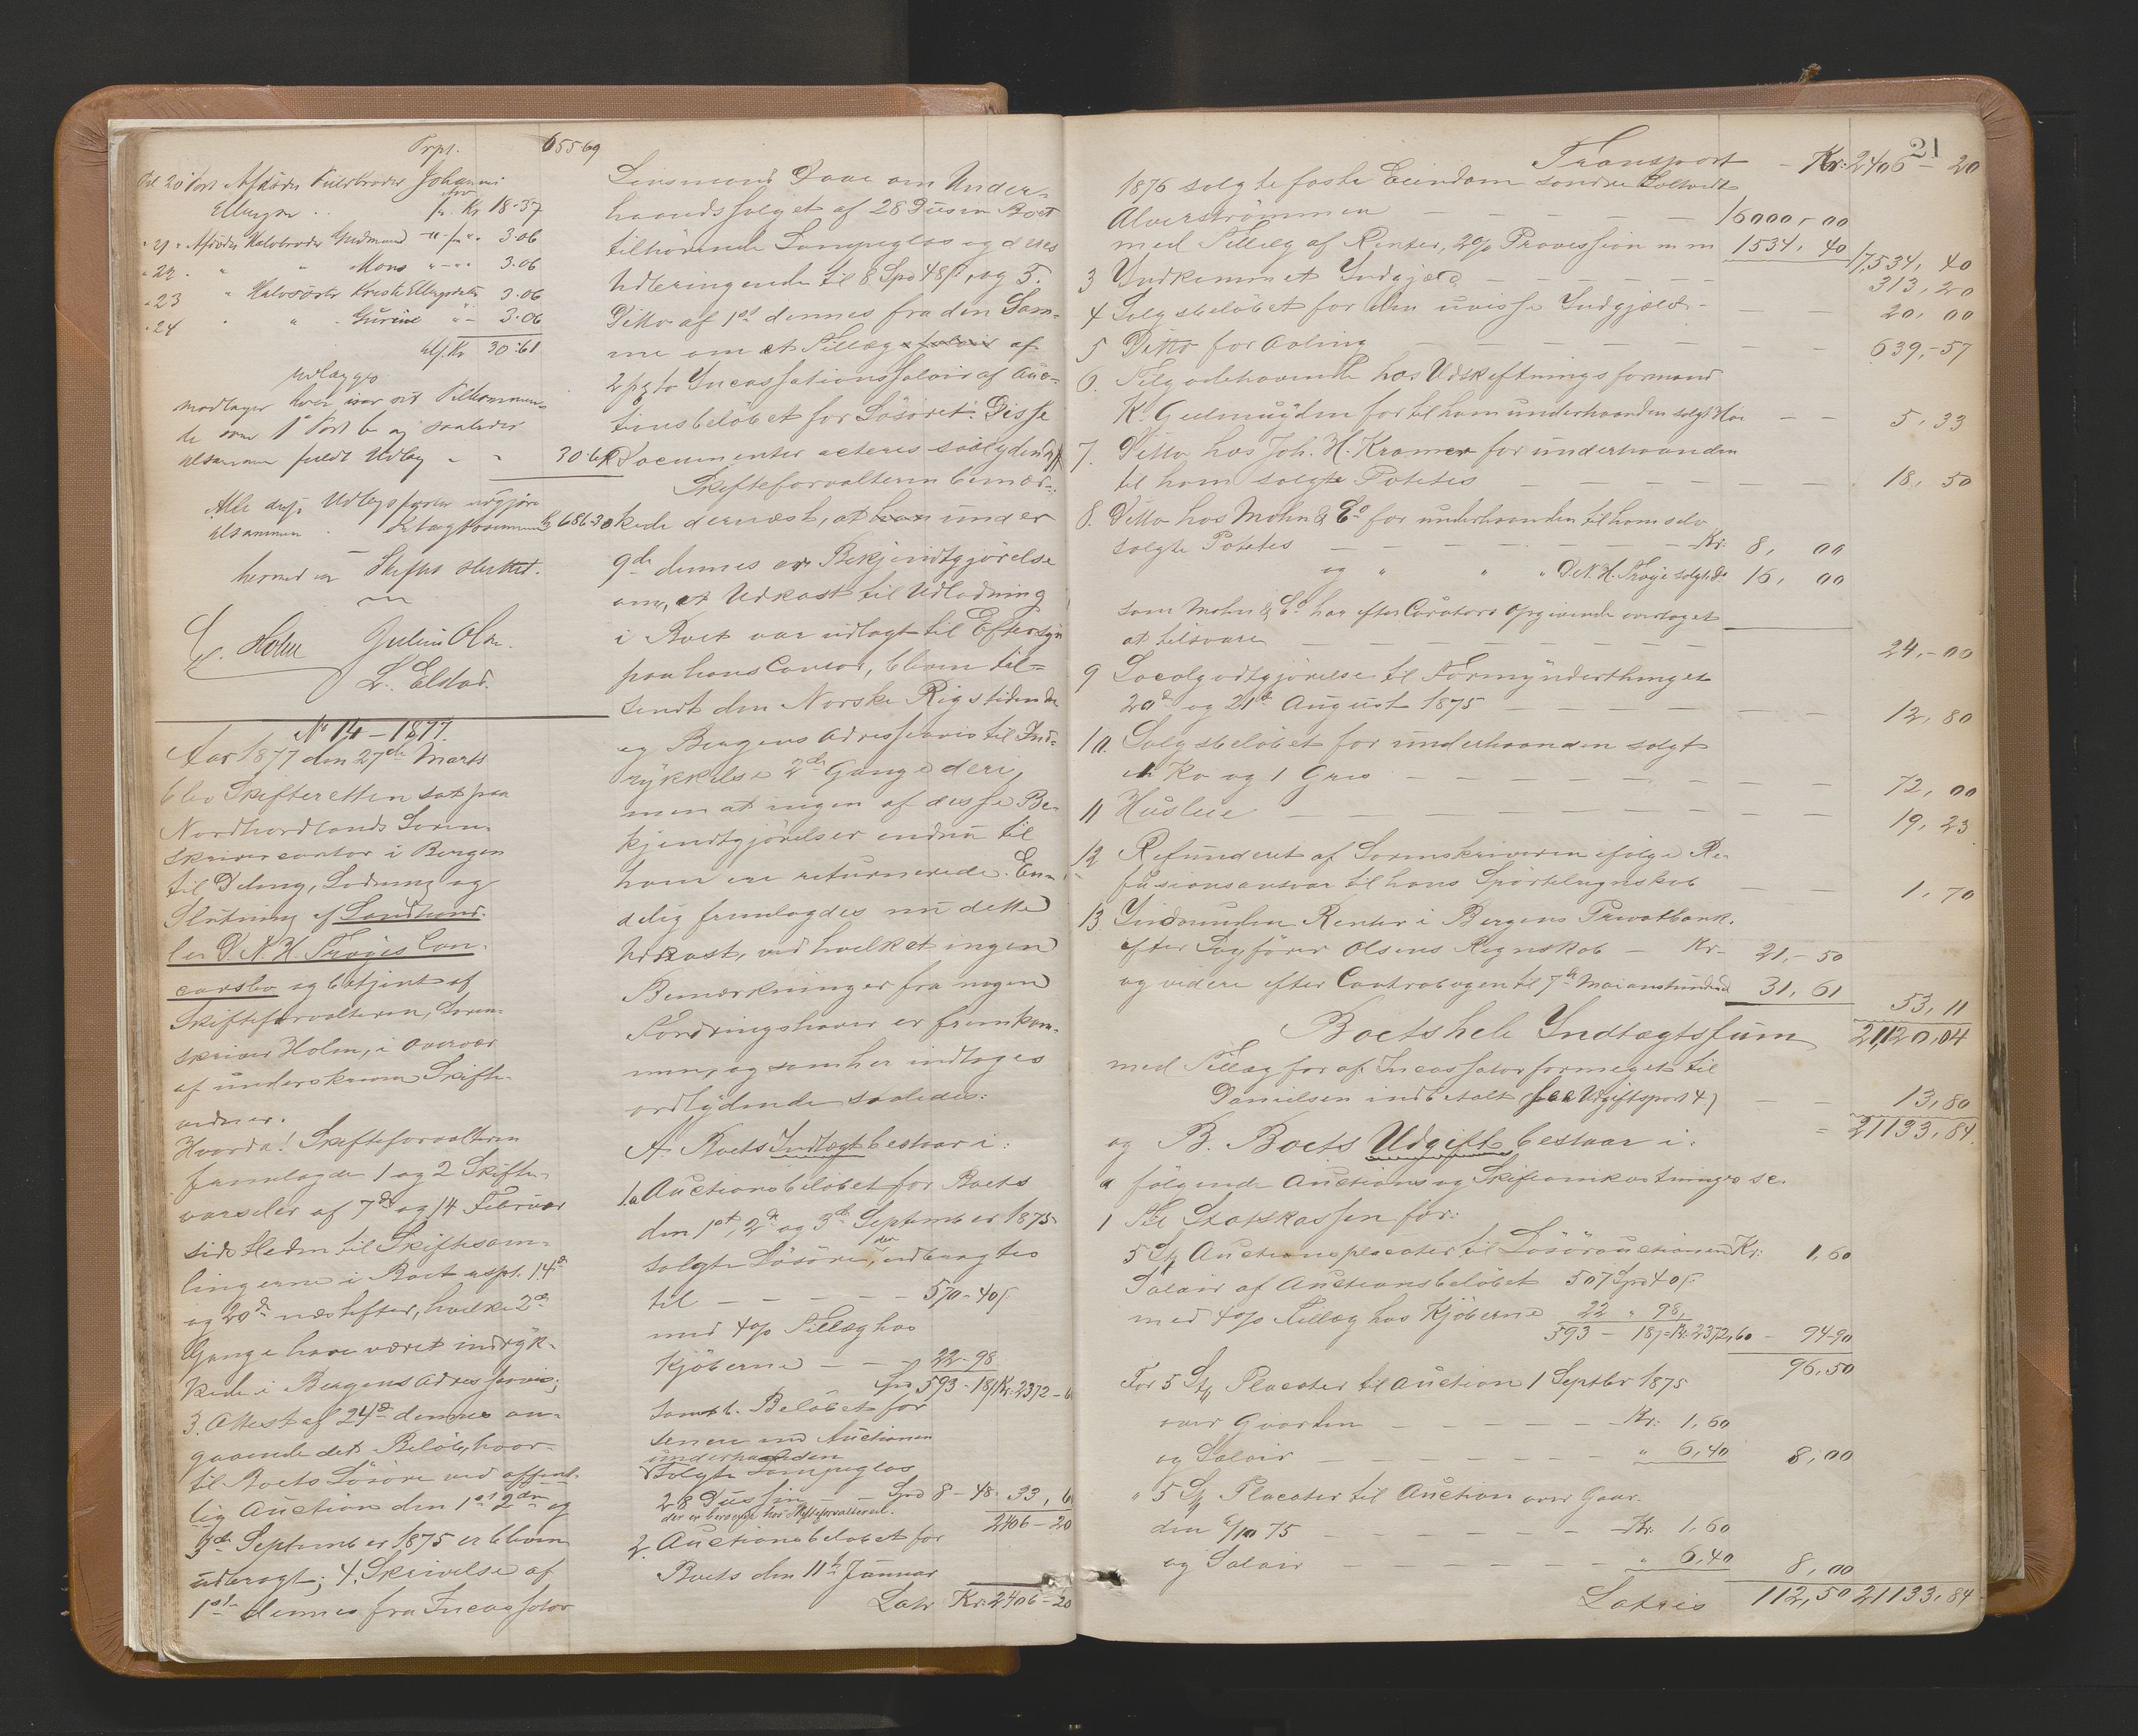 Trpt. 655-69
Til 20 Post Afdødes Fuldbroder Johannes
Ellingsen . . Kr 18-37
" 21 " Afdødes Halvbroder Gudmund " - " 3.06
" 22 . " " Mons " - " 3.06
" 23 " Halvsøster Kirsti Ellingsdatter 3.06
" 24 " " Gurine " - 3.06
tils. Kr 30-61
udlægges
modtager hver især sit Tilkommen-
de som 1e Post b og saaledes
tilsammen fuldt Udlæg " " 30-61
Alle disse Udlægsposter udgjøre
tilsammen . Kr 686-30
hermed er Skiftet sluttet.
Holm Julius Olsen
L. Elstad.
No 14 - 1877.
Aar 1877 den 27de Marts
blev Skifteretten sat paa
Nordhordlands Soren-
skrivercontor i Bergen
til Deling, Lodning og
Slutning af Landhand-
ler D. N. H. Trøyes Con-
cursbo og betjent af
Skifteforvalteren, Soren-
skriver Holm, i Overvær
af underskrevne Skifte-
vidner.
Hvorda! Skifteforvalteren
fremlagde 1 og 2 Skifte-
varsler af 7de og 14 Februar
sidstleden til Skiftesam-
lingerne i Boet respt. 14de
og 20de næstefter, hvilke 2de
Gange have været indryk-
kede i Bergens Adresseavis;
3. Attest af 24de dennes an-
gaaende det Beløb, hvor-
til Boets Løsøre ved offent-
lig Auction den 1st 2den og
3de September 1875 er bleven
udbragt; 4. Skrivelse af
1ste dennes fra Incassator
Lensmand Daae om Under-
haandssalget af 28 Dusin Boet
tilhørende Lampeglas og deres
Udbringende til 8 Spd 48 s, og 5.
Ditto af 1st dennes fra den Sam-
me om et Tillæg af
2 pCto Incassationssalair af Auc-
tionsbeløbet for Løsøret. Disse
Documenter acteres saalydende //
Skifteforvalteren bemær-
kede dernæst, at under
9de dennes er Bekjendtgjørelse
om, at Udkast til Udlodning
i Boet var udlagt til Eftersyn
paa hans Contor, bleven til-
sendt den Norske Rigstidende
og Bergens Adresseavis til Ind-
rykkelse 2de Gange deri,
men at ingen af disse Be-
kjendtgjørelser endnu til
ham ere returnerede. En-
delig fremlagdes nu dette
Udkast, ved hvilket ingen
Bemærkninger fra nogen
Fordringshaver er fremkom-
men, og som her indtages
ordlydende saaledes:
A. Boets Indtægt bestaar i:
1.a Auctionsbeløbet for Boets
den 1st, 2de og 3de September 1875
solgte Løsøre, der udbragtes
til - - - - - 570-40 s.
med 4 o/o Tillæg hos
Kjøberne - - - 22-98
Spd 593-18 s Kr. 2372-6
samt b. Beløbet for
senere end Auctionen
underhaanden
solgte Lampeglas
28 Dussin - - Spd 8-48. 33, 6
der er beroende hos Skifteforvalteren.
2406-20
2. Auctionsbeløbet for
Boets den 11te Januar
Latr. Kr. 2406-20
21
Transport - Kr: 2406-20
1876 solgte faste Eiendom søndre
Alverstrømmen - - - - - - 16000,-00
med Tillæg af Renter, 2 o/o Provession m m 1534, 40 17,534, 40
3 Indkommet Indgjæld - - - - - 313, 20
4 Salgsbeløbet for den uvisse Indgjæld - - - 20, 00
5 Ditto for Avling - - - - - - - - 639,-57
6. Tilgodehavende hos Udskiftningsformand
K. Gulmuyden for til ham underhaanden solgt Hø - - 5, 33
7. Ditto hos Joh. H. Kramer for underhaanden
til ham solgte Potetes - - - - - - - 18, 50
8. Ditto hos Mohn & Co for underhaanden til ham selv
solgte Potetes - - - - - - Kr: 8, 00
og " " " D. N. H. Trøye solgt do 16, 00
som Mohn & Co har efter Curators Opgivende overtaget
at tilsvare - - - - - - - 24,-00
9 Localgodtgjørelse til Formynderthinget
20de og 21de August 1875 - - - - - 12, 80
10. Salgsbeløbet for underhaanden solgt
1 Ko og 1 Gris - - - - - - - 72, 00
11 Husleie - - - - - - - - 19, 23
12 Refunderet af Sorenskriveren ifølge Re-
fusionsansvar til hans Sportelregnskab - - 1, 70
13. Indvundne Renter i Bergens Privatbank
efter Sagfører Olsens Regnskab - Kr. 21,-50
og videre efter Contrabogen til 7de Mai anstundende 31, 61 53, 11
Boets hele Indtægtssum 21,120,04
med Tillæg for af Incassator formeget til
Danielsen indbetalt (see Udgiftspost 4) - - 13,80
= 21133,84.
og B. Boets Udgift bestaar i:
a følgende Auctions og Skifteomkostninger
1 Til Statskassen for:
5 Stk Auctionsplacater til Løsøreauctionen Kr: 1,60
Salair af Auctionsbeløbet 507 Spd 40 s.
med 4 o/o Tillæg hos Kjøberne 22 " 98,
593 - 18 s = Kr. 2372,60 - 94-90
96,50
For 5 Stk Placater til Auction 1 Septbr 1875
over Gaarden - - - - - Kr: 1,60
og Salair - - - - - - " 6,40 8,00
" 5 Stk Placater til Auction over Gaar-
den 6/10 75 - - - - - - Kr: 1,60
og Salair - - - - - - " 6,40 8,00
Lateris 112,50 21133,84